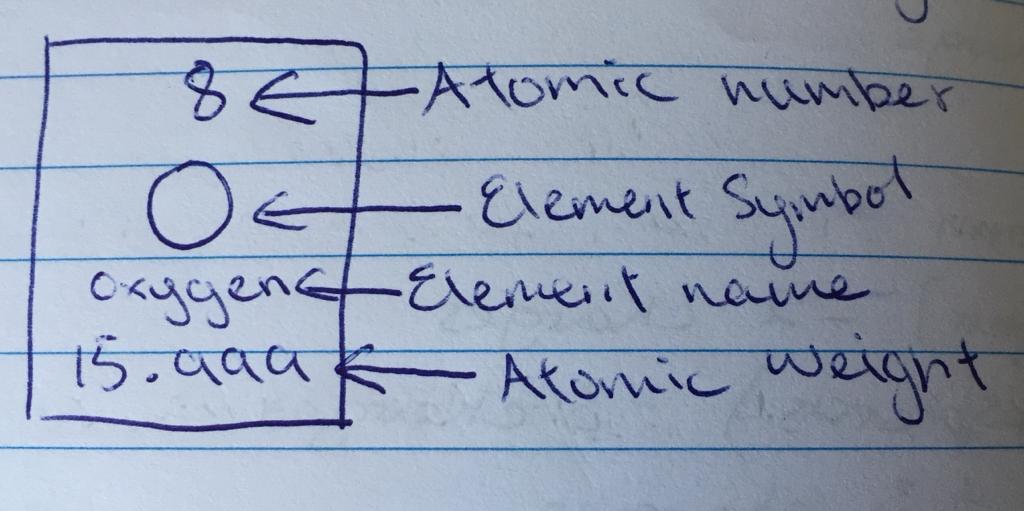 8 Atomic number
O Element Symbol
oxygen Element name
15.999 Atomic weight